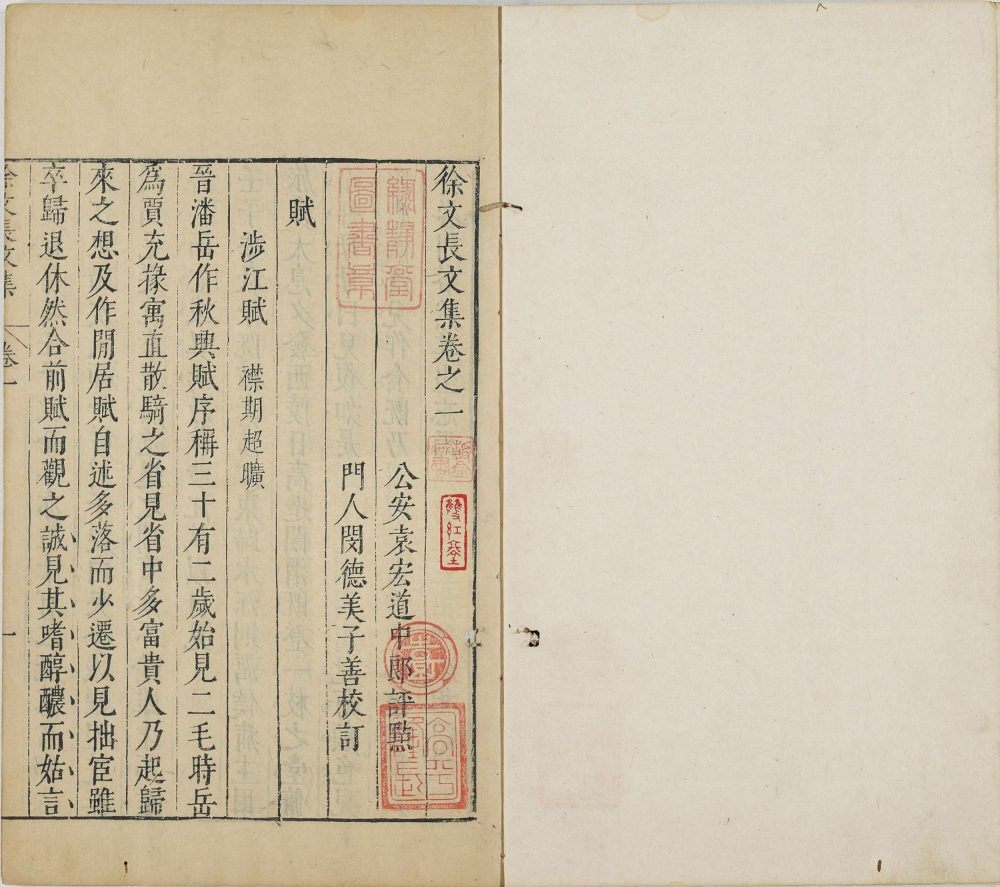 徐文長文集卷之一
公安袁宏道中郎評點
門人閔德美子善校訂
賦
涉江賦 襟期超曠
晉潘岳作秋興賦序稱三十有二歲始見二毛時岳
為賈充掾寓直散騎之省見省中多富貴人乃起歸
來之想及作閒居賦自述多落而少遷以見拙宦雖
卒歸退休然合前賦而觀之誠見其嗜醇醲而姑言
徐文長文集 卷一
一
圖書章
雙紅堂